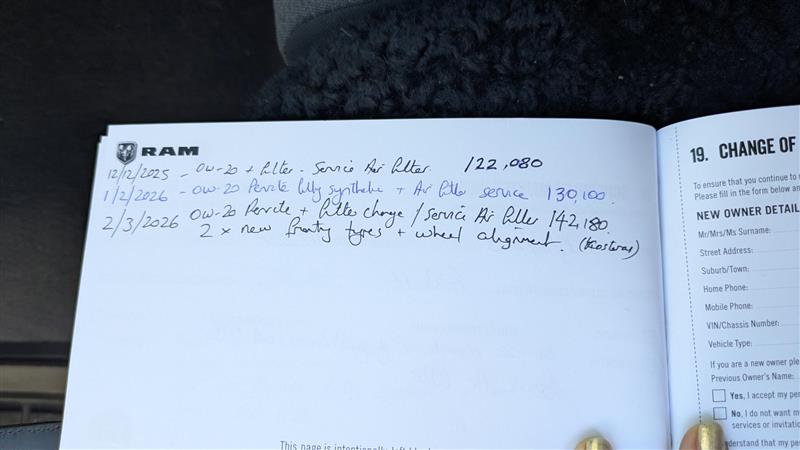 RAM
12/12/2025 - OW-20 + filter - Service Air filter. 122,080
1/2/2026 - OW-20 Penrite fully synthetic + Air filter service 130,100.
2/3/2026 OW-20 Penrite + filter change / Service Air filter 142,180.
2 x new front tyres + wheel alignment.
This page is intentionally left
19. CHANGE OF
To ensure that you continue to
Please fill in the form below an
NEW OWNER DETAIL
Mr/Mrs/Ms Surname:
Street Address:
Suburb/Town:
Home Phone:
Mobile Phone:
VIN/Chassis Number:
Vehicle Type:
If you are a new owner ple
Previous Owner's Name:
Yes, I accept my per
No, I do not want m
services or invitatio
derstand that my pe